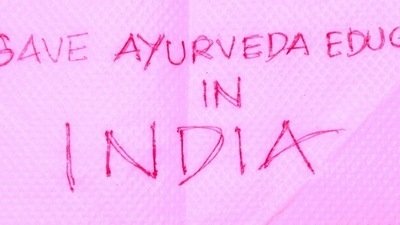 SAVE AYURVEDA EDUC
IN
INDIA